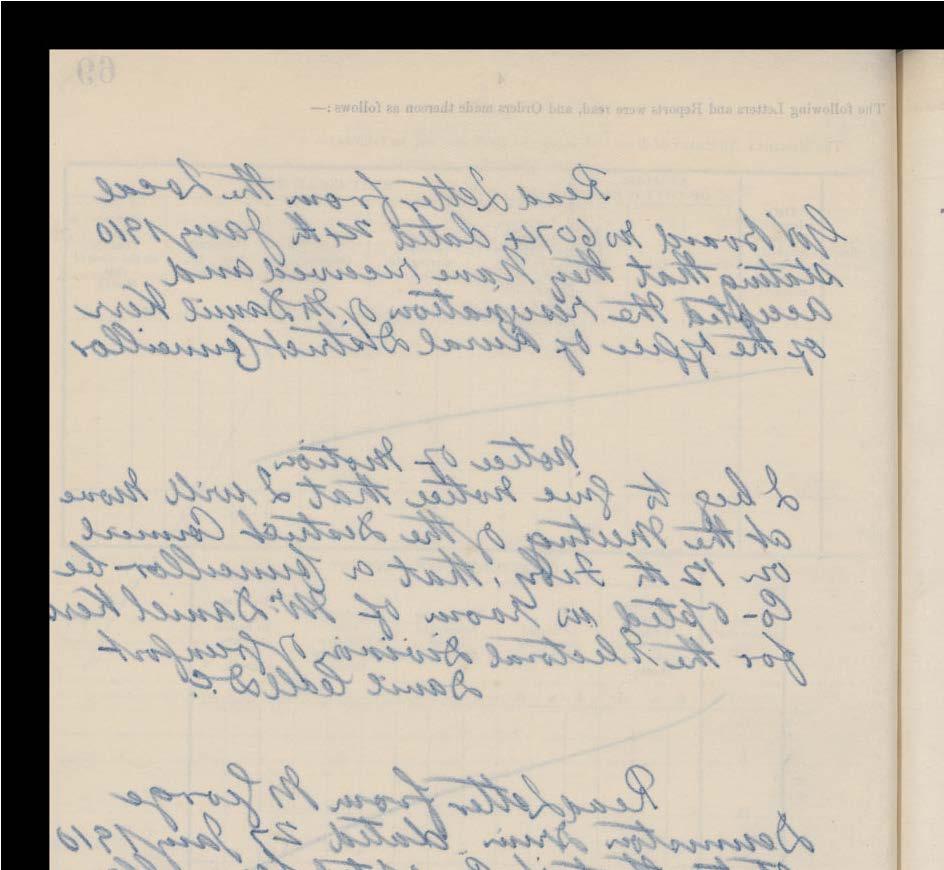 69
4
The following Letters and Reports were read, and Orders made thereon as follows :—
Read Letter from the Local
Govt Board No 6074 dated 24th Jany 1910
stating that they have received and
accepted the resignation of Mr Daniel Kerr
of the office of Rural District Councillor
Notice of Motion
I beg to give notice that I will move
at the Meeting of the District Council
on 12th Feby, that a Councillor be
Co-opted in room of Mr. Daniel Kerr
for the Electoral Division of Greenfort
Daniel D.C.
Read Letter from Mr George
Denniston dated 27 Jany 1910